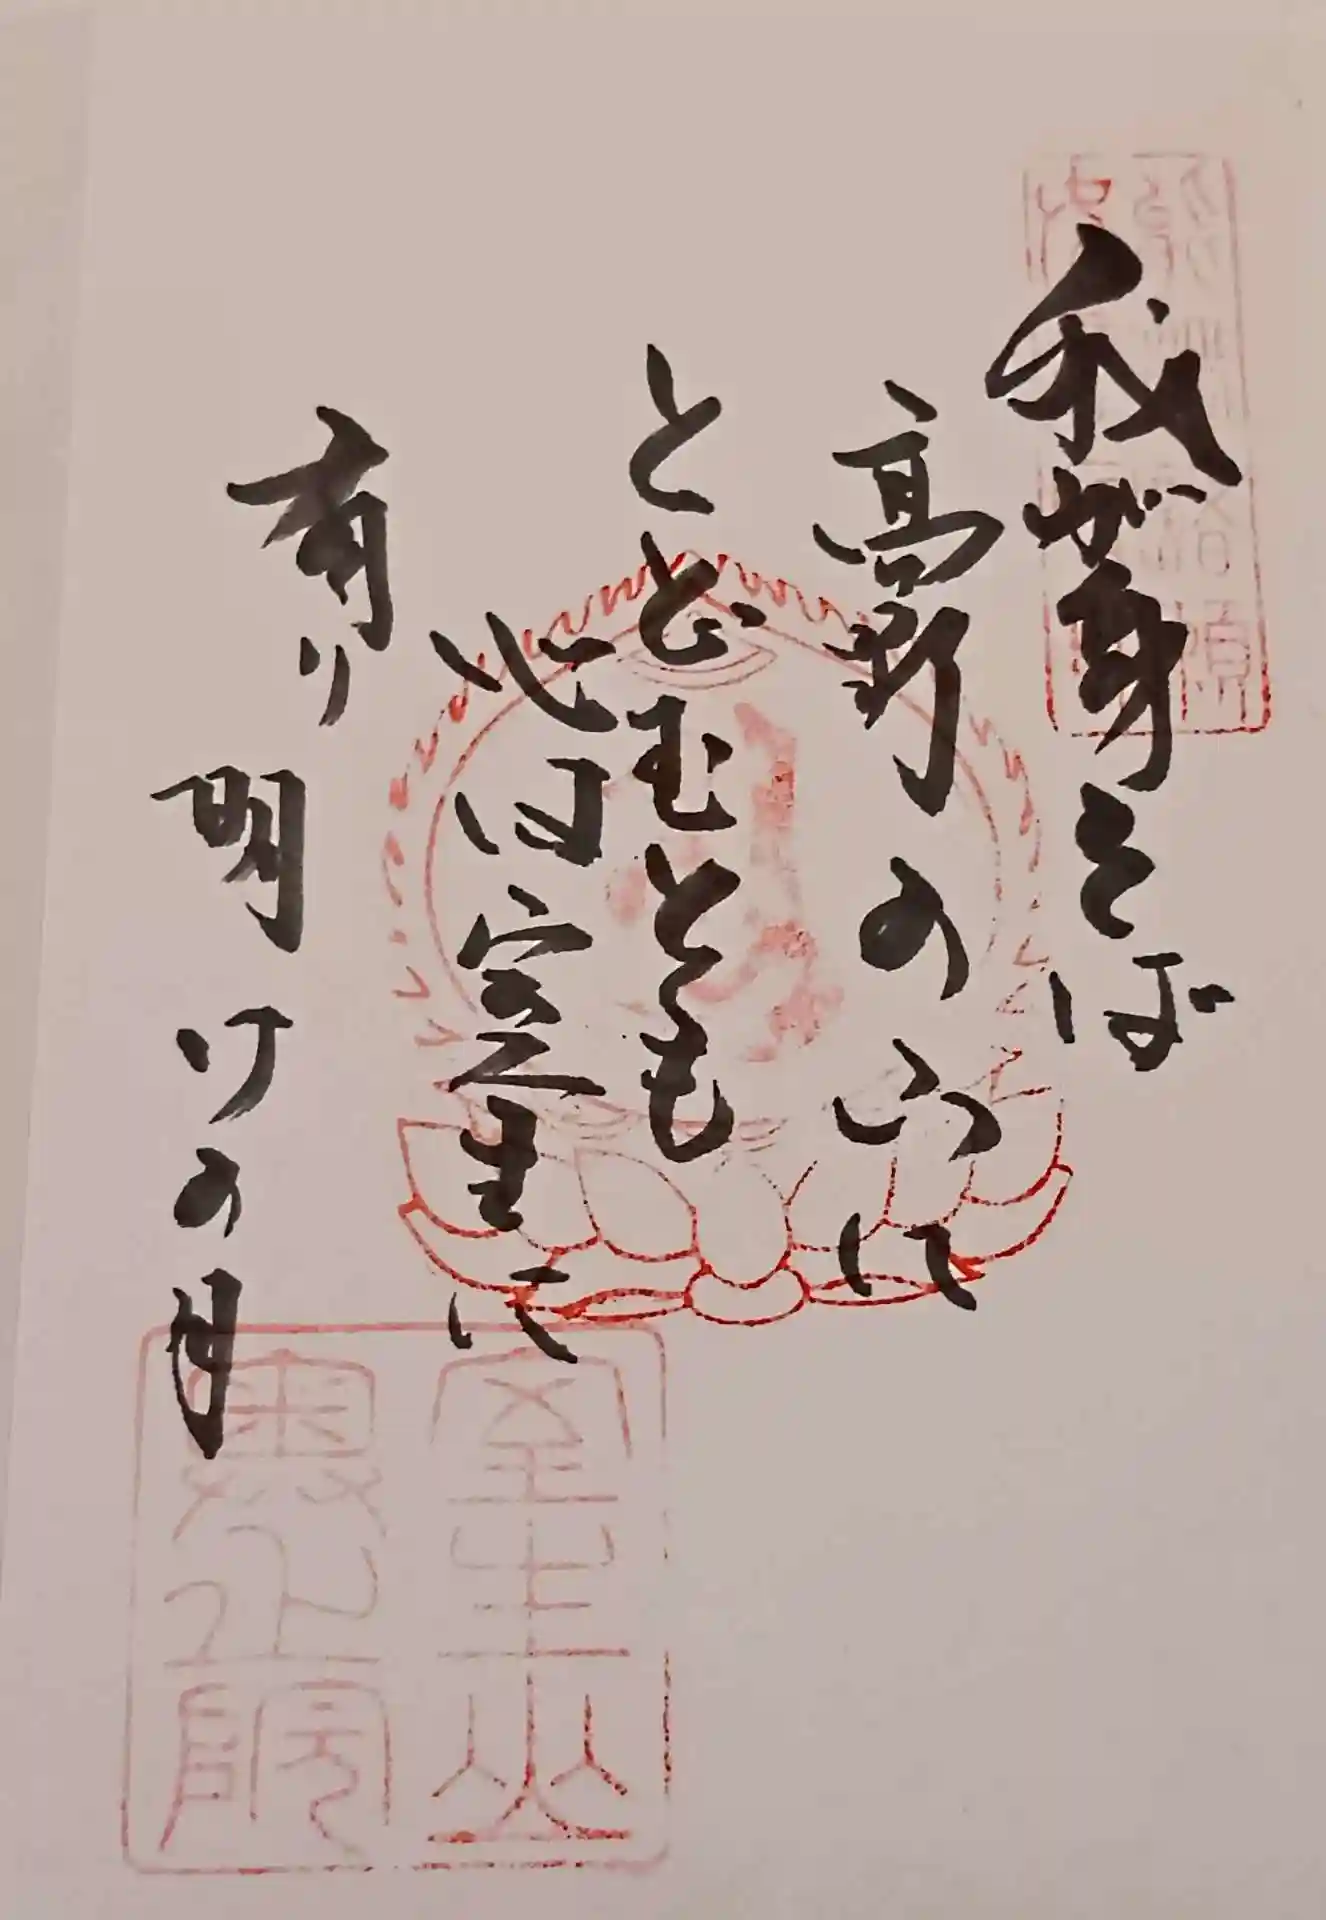 我が身をば
高野の山に
とどむとも
心は室生に
有り
明けの月
室生山
奥之院